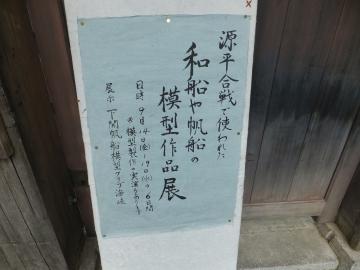 源平合戦で使われた
和船や帆船の
模型作品展
日時 9月14日(金)~19日(水)の6日間
※模型製作の実演もあります
展示 下関帆船模型クラブ海峡